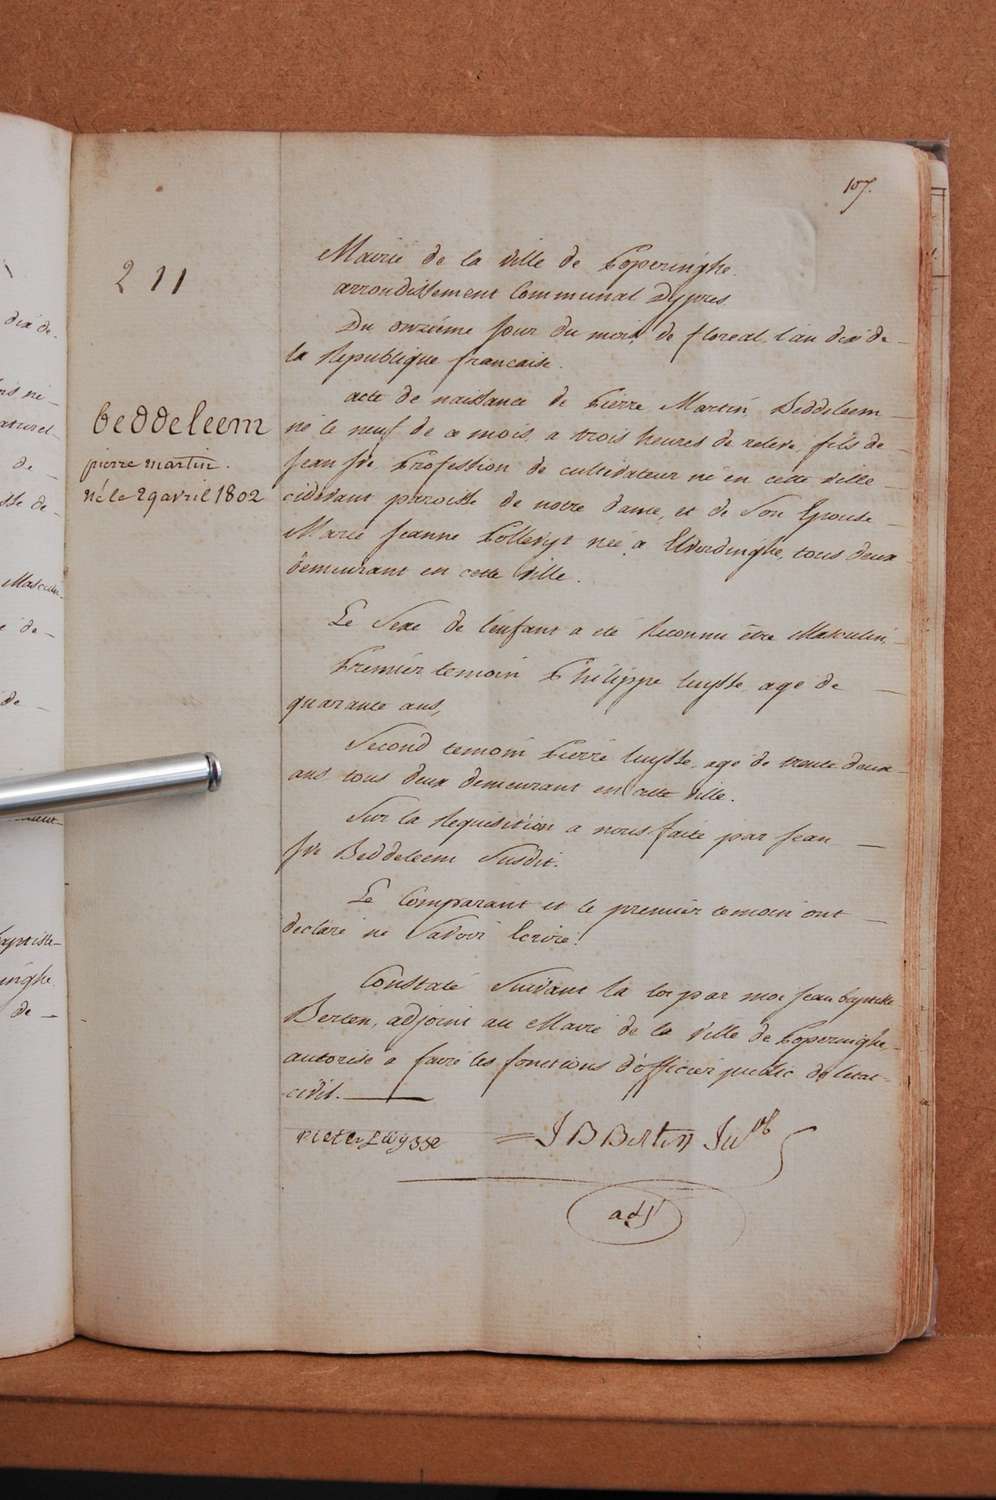 107.
211
Mairie de la ville de Poperinghe.
arrondissement Communal Dypres
Du onzième jour du mois de floreal, l'an dix de
la Republique francaise.
beddeleem
pierre martin.
né le 29 avril 1802
acte de naissance de Pierre Martin Beddeleem
né le neuf de ce mois, a trois heures de relevé, fils de
Jean fre Profession de cultivateur né en cette ville
cidevant paroisse de notre dame, et de Son Epouse
Marie Jeanne née a Elverdinghe, tous deux
demeurant en cette ville.
Le Sexe de l'enfant a eté Reconnu être Masculin,
Premier temoin Philippe luysse, age de
quarante ans,
Second temoin Pierre luysse, age de trente deux
ans, tous deux demeurant en cette ville.
Sur la Requisition a nous faite par Jean
fre Beddeleem Susdit.
Le Comparant et le premier temoin ont
declaré ne Savoir Ecrire.
Constaté Suivant la loi par moi Jean baptiste
Berten, adjoint au Maire de la ville de Poperinghe,
autorisé a faire les fonctions d'officier public de letat
civil.
pieter Luysse
J B Berten
adj
dix de
de
de
Masculin
de
de
baptiste
inghe
de